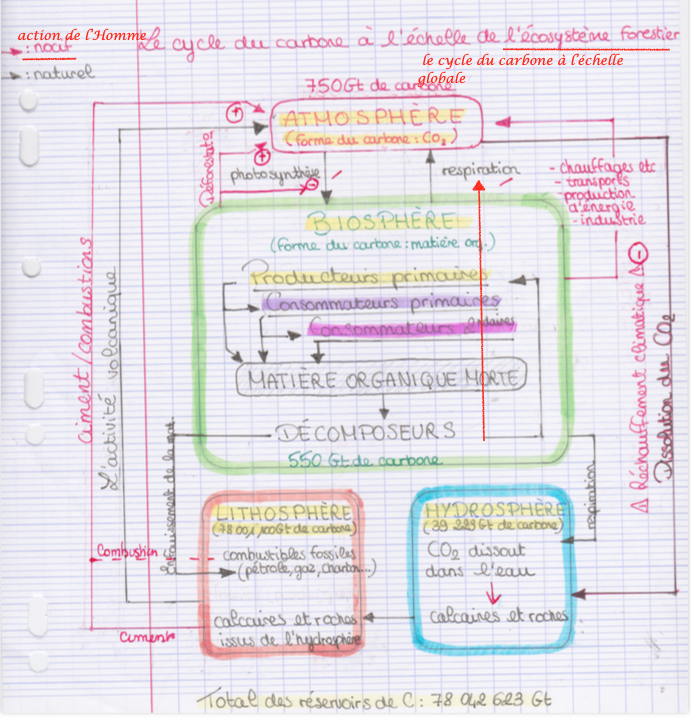 action de l'Homme
: nocif
: naturel
Le cycle du carbone à l'échelle de l'écosystème forestier
le cycle du carbone à l'échelle
globale
750 Gt de carbone
ATMOSPHÈRE
(forme du carbone : CO₂)
+
+
Déforestat°
photosynthèse
-
respiration
- chauffages etc
- transports
production
d'énergie
- industrie
BIOSPHÈRE
(forme du carbone : matière org.)
Producteurs primaires
Consommateurs primaires
Consommateurs 2ndaires
MATIÈRE ORGANIQUE MORTE
DÉCOMPOSEURS
550 Gt de carbone
ciment/combustions
L'activité volcanique
Enfouissement de la mat.
respiration
Δ Réchauffement climatique Δ -
Dissolution du CO₂
LITHOSPHÈRE
Gt de carbone)
combustibles fossiles
(pétrole, gaz, charbon...)
calcaires et roches
issus de l'hydrosphère
Combustion
Ciment
HYDROSPHÈRE
(39 223 Gt de carbone)
CO₂ dissout
dans l'eau
calcaires et roches
Total des réservoirs de C : 78 042 623 Gt